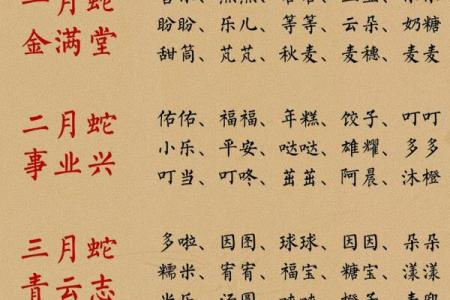 金满堂
盼盼、乐儿、等等、云朵、奶糖
甜筒、芃芃、秋麦、麦穗、麦麦
二月蛇
事业兴
佑佑、福福、年糕、饺子、叮叮
小乐、平安、哒哒、雄耀、多多
叮当、叮咚、茁茁、阿晨、沐橙
三月蛇
青云志
多啦、因图、球球、因因、朵朵
糯米、宥宥、福宝、糖宝、漾漾